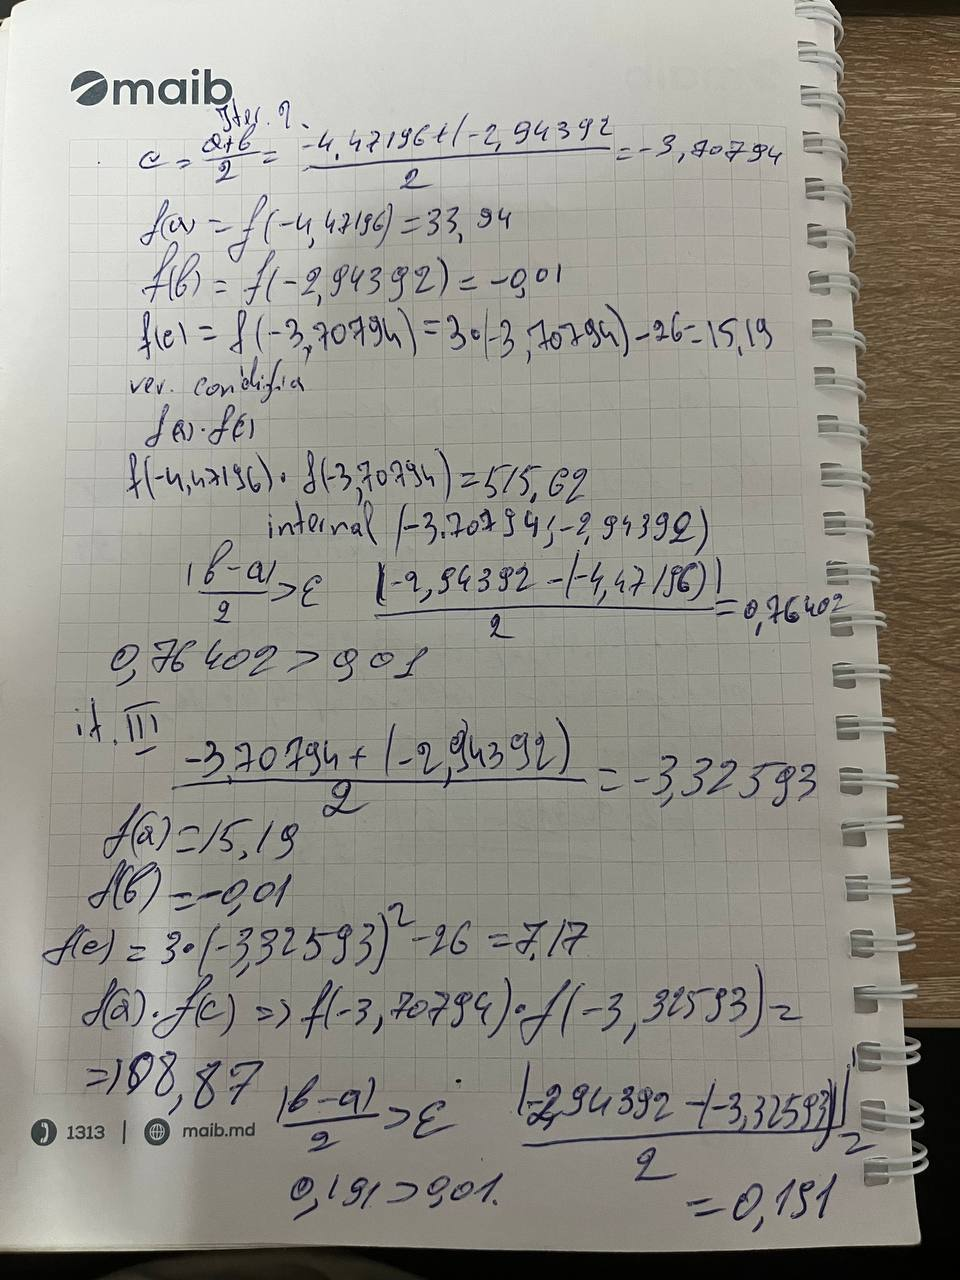 maib
Iter. 2.
c = (a+b)/2 = (-4,47196+(-2,94392)/2 = -3,70794
f(a) = f(-4,47196) = 33,94
f(b) = f(-2,94392) = -0,01
f(c) = f(-3,70794) = 3·(-3,70794)-26=15,19
ver. condiția
f(a)·f(c)
f(-4,47196)· f(-3,70794) = 515,62
interval (-3.70794;-2,94392)
|b-a|/2 > ε |-2,94392-(-4,47196)|/2 = 0,76402
0,76402 > 0,01
it. III
-3,70794+(-2,94392)/2 = -3,32593
f(a) = 15,19
f(b) = -0,01
f(c) = 3·(-3,32593)² -26 = 7,17
f(a)·f(c) => f(-3,70794)·f(-3,32593) =
= 108,87
|b-a|/2 > ε |-2,94392-(-3,32593)|/2 =
1313 | maib.md
0,191 > 0,01.
= 0,191